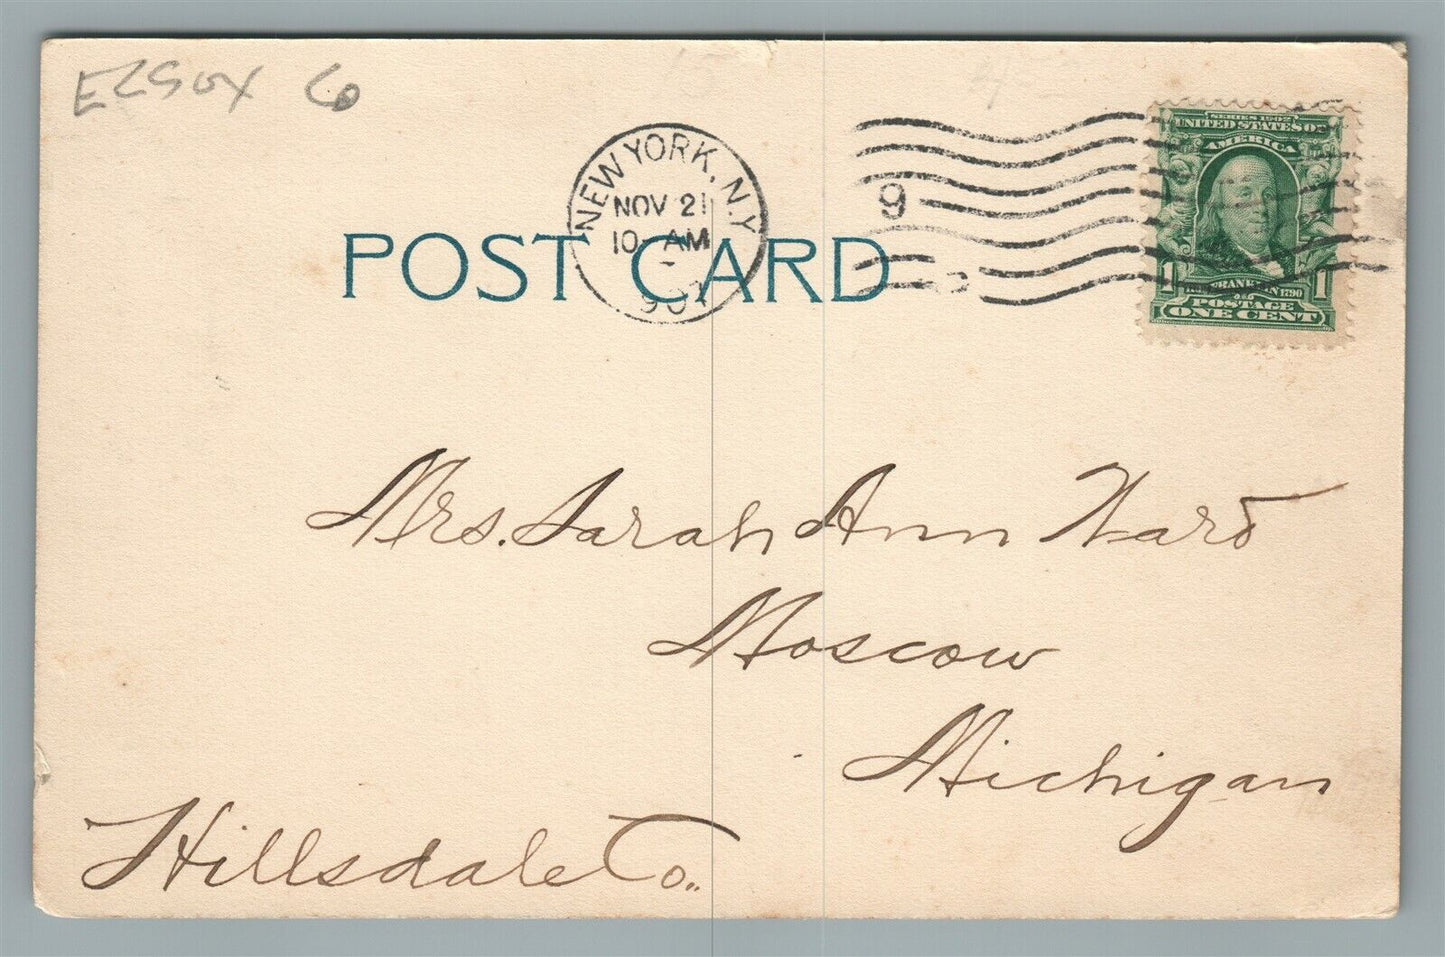 NEW YORK, N.Y.
NOV 21
10 AM
1907
9
SERIES 1902
UNITED STATES OF
AMERICA
FRANKLIN 1790
POSTAGE
1 ONE CENT 1
POST CARD
Mrs. Sarah Ann Ward
Moscow
Michigan
Hillsdale Co.